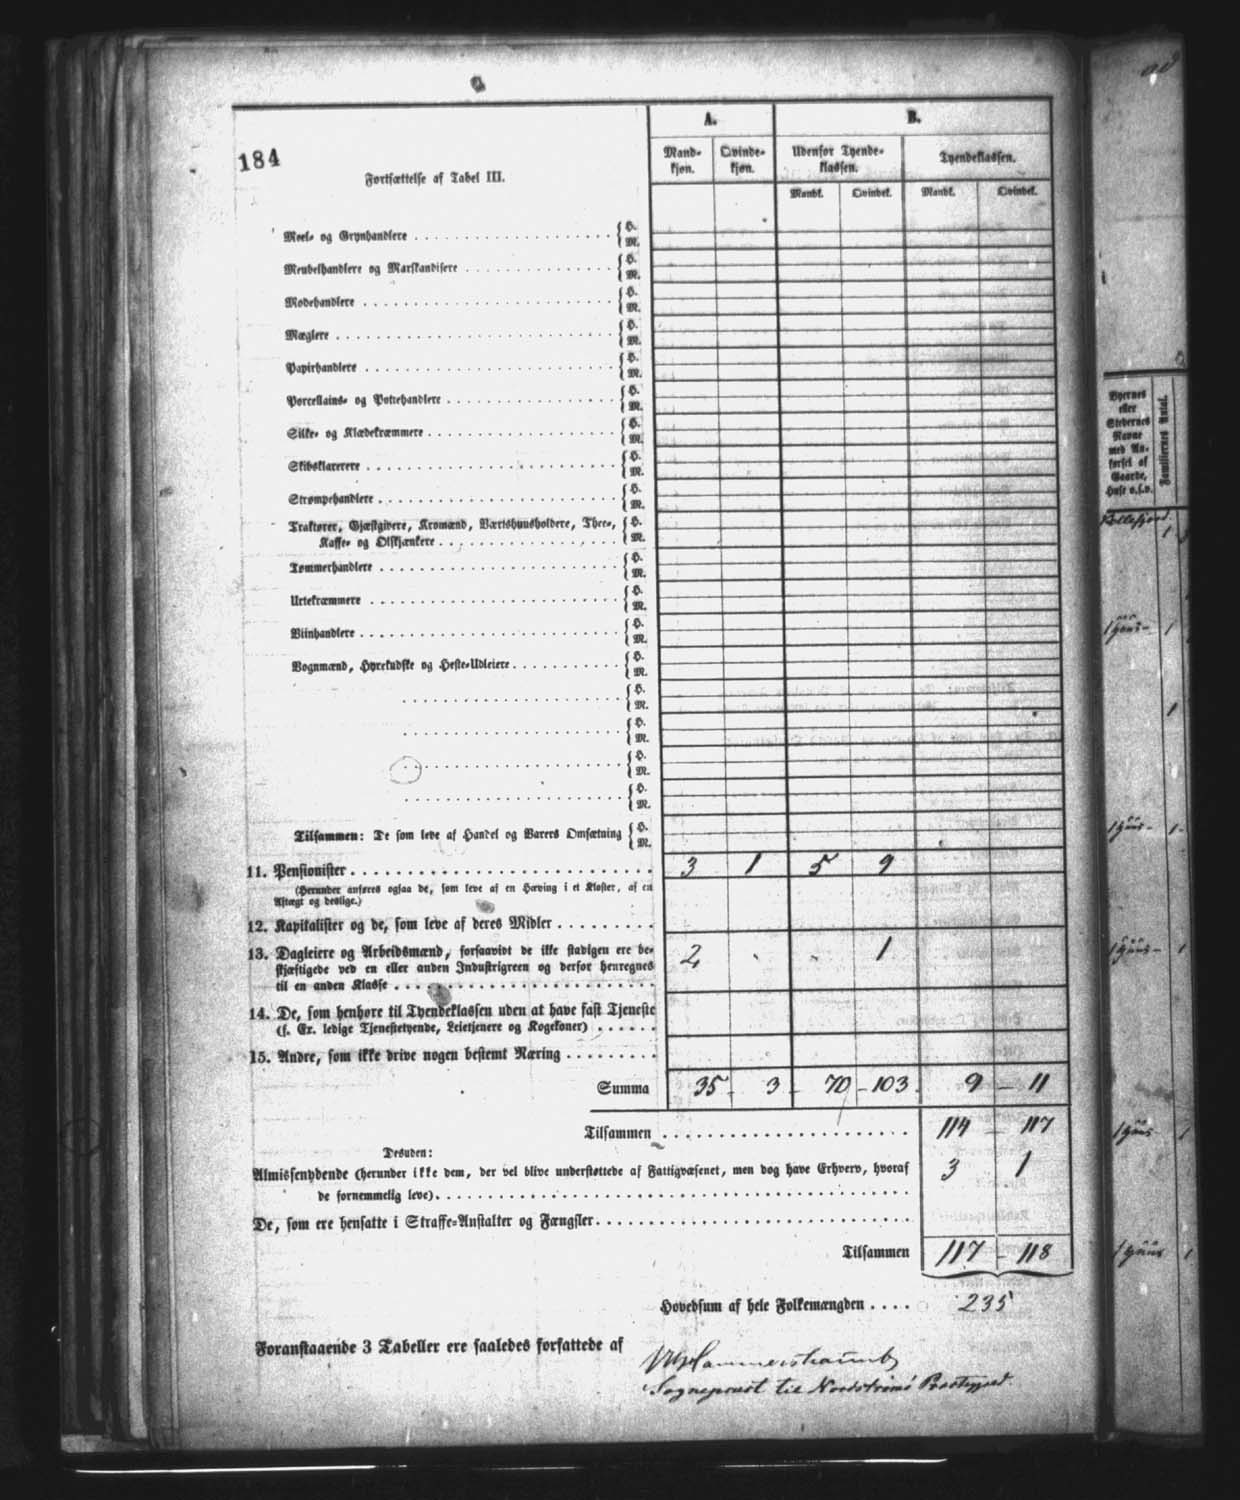 184
Fortsættelse af Tabel III.
A. B.
Mand- kjøn. Qvinde- kjøn. Udenfor Tyende- klassen. Tyendeklassen.
Mandk. Qvindek. Mandk. Qvindek.
Meel- og Grynhandlere { H. M.
Meubelhandlere og Marskandisere { H. M.
Modehandlere { H. M.
Mæglere { H. M.
Papirhandlere { H. M.
Porcellains- og Pottehandlere { H. M.
Silke- og Klædekræmmere { H. M.
Skibsklarerere { H. M.
Strømpehandlere { H. M.
Traktører, Gjæstgivere, Kromænd, Værtshuusholdere, Thee-, { H.
Kaffe- og Ølskjænkere { M.
Tømmerhandlere { H. M.
Urtekræmmere { H. M.
Viinhandlere { H. M.
Vognmænd, Hyrekudske og Heste-Udleiere { H. M.
{ H. M.
{ H. M.
{ H. M.
{ H. M.
Tilsammen: De som leve af Handel og Varers Omsætning { H. M.
11. Pensionister 3 1 5 9
(Herunder anføres ogsaa de, som leve af en Hæving i et Kloster, af en
Aftægt og deslige.)
12. Kapitalister og de, som leve af deres Midler
13. Dagleiere og Arbeidsmænd, forsaavidt de ikke stadigen ere be-
skjæftigede ved en eller anden Industrigreen og derfor henregnes
til en anden Klasse 2 - - 1
14. De, som henhøre til Tyendeklassen uden at have fast Tjeneste
(f. Ex. ledige Tjenestetyende, Leietjenere og Kogekoner)
15. Andre, som ikke drive nogen bestemt Næring
Summa 35 - 3 - 70 - 103 - 9 - 11
Tilsammen 114 - 117
Desuden:
Almissenydende (herunder ikke dem, der vel blive understøttede af Fattigvæsenet, men dog have Erhverv, hvoraf
de fornemmelig leve) 3 1
De, som ere hensatte i Straffe-Anstalter og Fængsler
Tilsammen 117 - 118
Hovedsum af hele Folkemængden 235
Foranstaaende 3 Tabeller ere saaledes forfattede af
Hammershaimb
Sognepræst til Nordstrømø Præstegjeld.
Byernes
eller
Stedernes
Navne
med An-
førsel af
Gaarde,
Huse o.s.v.
Familiernes Antal.
Kollefjord
1
1 Huus - 1
1
1 Huus - 1
1 Huus - 1
1 Huus 1
1 Huus 1